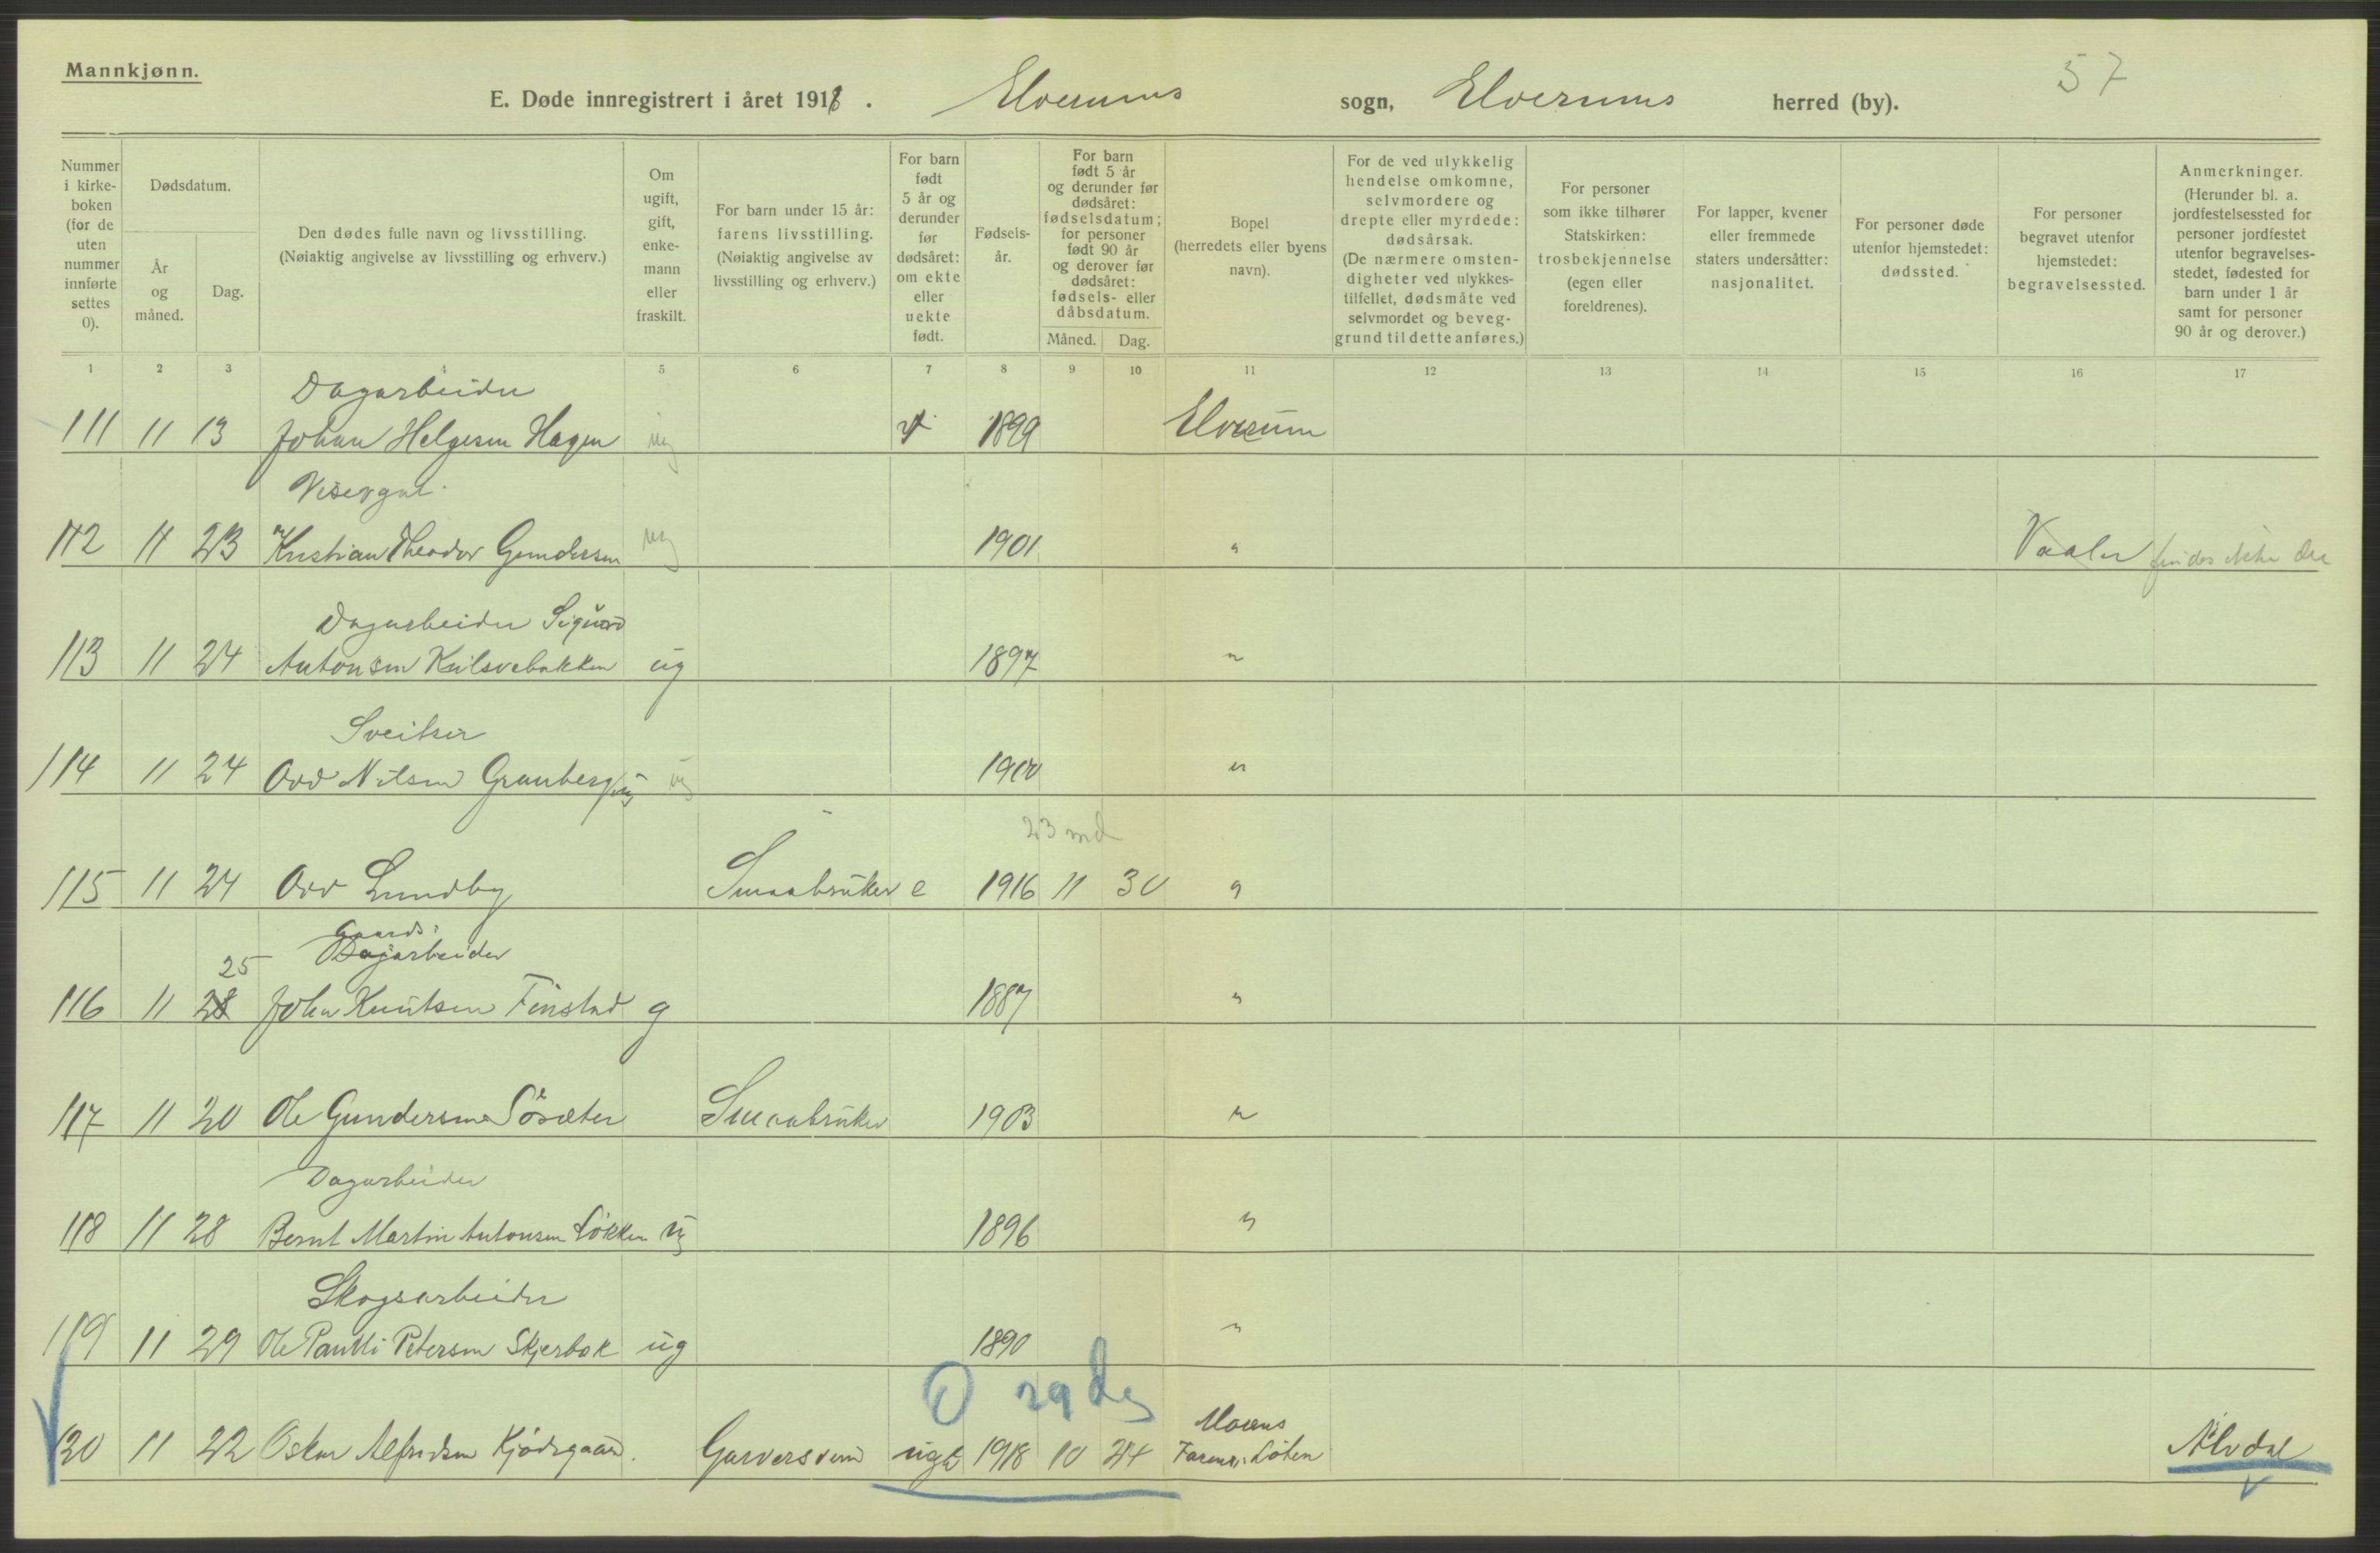 Mannkjønn.
57
E. Døde innregistrert i året 1918. Elverums sogn, Elverums herred (by).
Nummer i kirke-boken (for de uten nummer innførte settes 0).
Dødsdatum.
År og måned.
Dag.
Den dødes fulle navn og livsstilling.
(Nøiaktig angivelse av livsstilling og erhverv.)
Om ugift, gift, enke-mann eller fraskilt.
For barn under 15 år: farens livsstilling. (Nøiaktig angivelse av livsstilling og erhverv.)
For barn født 5 år og derunder før dødsåret: om ekte eller uekte født.
Fødsels-år.
For barn født 5 år og derunder før dødsåret: fødselsdatum; for personer født 90 år og derover før dødsåret: fødsels- eller dåbsdatum.
Måned. Dag.
Bopel (herredets eller byens navn).
For de ved ulykkelig hendelse omkomne, selvmordere og drepte eller myrdede: dødsårsak. (De nærmere omsten-digheter ved ulykkes-tilfellet, dødsmåte ved selvmordet og beveg-grund til dette anføres.)
For personer som ikke tilhører Statskirken: trosbekjennelse (egen eller foreldrenes).
For lapper, kvener eller fremmede staters undersåtter: nasjonalitet.
For personer døde utenfor hjemstedet: dødssted.
For personer begravet utenfor hjemstedet: begravelsessted.
Anmerkninger. (Herunder bl. a. jordfestelsessted for personer jordfestet utenfor begravelses-stedet, fødested for barn under 1 år samt for personer 90 år og derover.)
1 2 3 4 5 6 7 8 9 10 11 12 13 14 15 16 17
Dagarbeider
111 11 13 Johan Helgesen Hagen ug 1899 Elverum
Visergut
112 11 23 Kristian Theodor Gundersen ug 1901 " Vaaler findes ikke der
Dagarbeider Sigurd
113 11 24 Antonsen ug 1897 "
Sveitser
114 11 24 Odd Nilsen Granberg ug ug 1900 "
23 md
115 11 24 Odd Lundby Smaabruker e 1916 11 30 "
Gaards-
25 Dagarbeider
116 11 28 John Knutsen Finstad g 1887 "
117 11 20 Ole Gundersen Søsæter Smaabruker 1903 "
Dagarbeider
118 11 28 Bernt Martin Antonsen Løkken ug 1896 "
Skogsarbeider
119 11 29 Ole Petersen Skjerbæk ug 1890 "
0 29 dg
Morens
120 11 22 Oskar Alfredsen Kjødsgaard. Garversvend 1918 10 24 Farens: Løten Alvdal